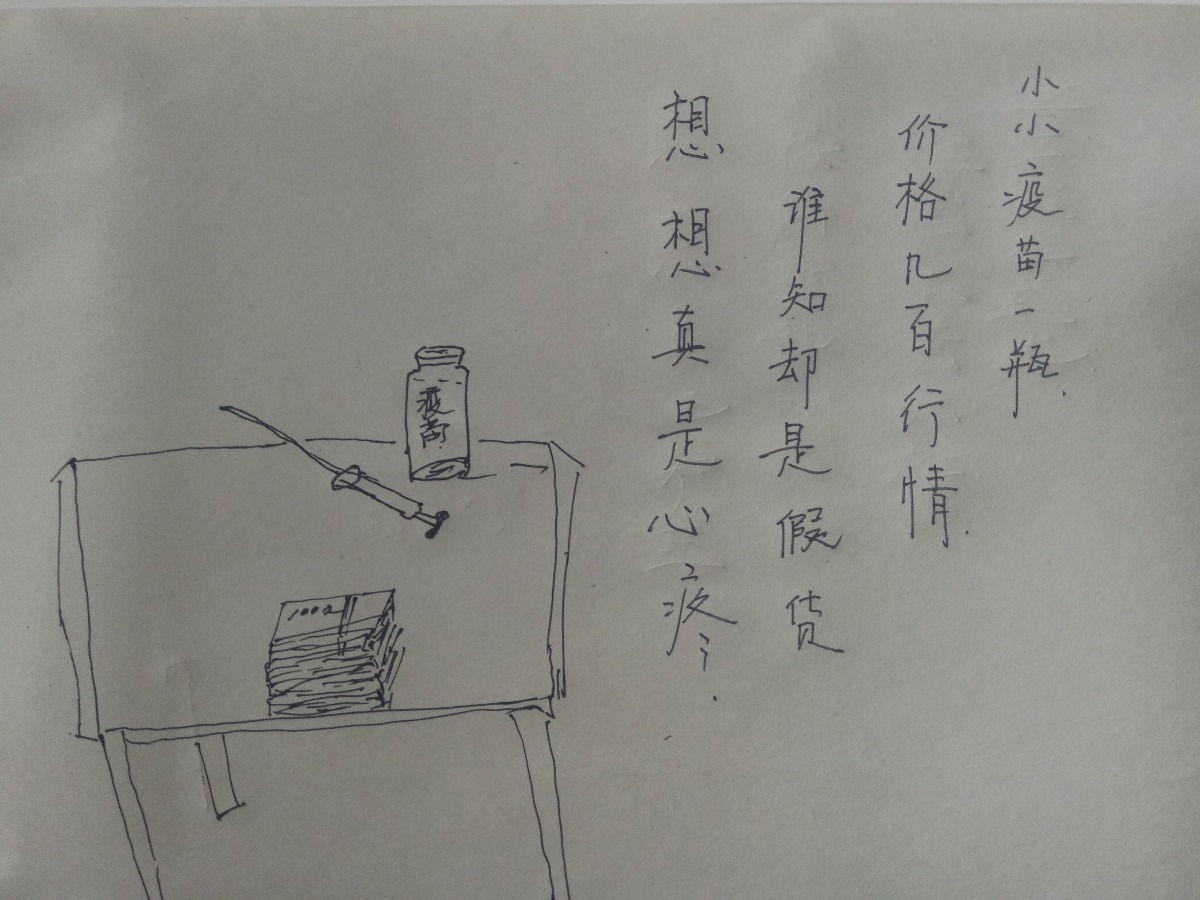 小小疫苗一瓶.
价格几百行情.
谁知却是假货
想想真是心疼.
疫苗
100元